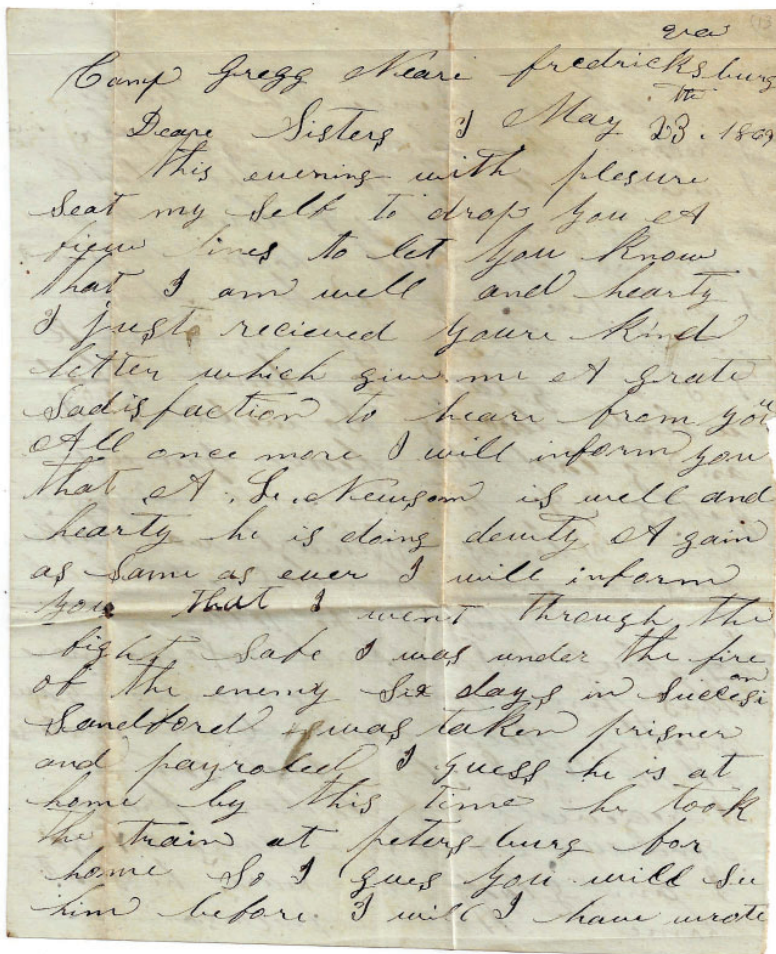 va
Camp Gregg Neare fredricksburg
Deare Sisters I May 23th. 1863
this evening with plesure
Seat my Self to drop you A
fiew lines to let you Know
that I am well and hearty
I just recieved youre Kind
letter which give me A grate
Sadisfaction to heare from you
All once more I will inform you
that A. L. Newsom is well and
hearty he is doing deuty A gain
as Same as ever I will inform
you that I went through the
fight Safe I was under the fire
of the enemy Six days in Succesion
Sandford was taken prisner
and payroled I guess he is at
home by this time he took
the train at peters burg for
home So I gues you will See
him before I will I have wrote